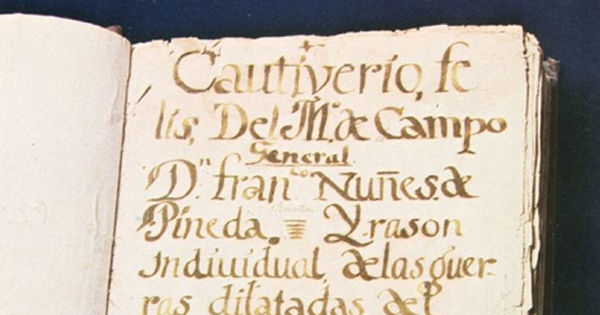 Cautiverio, fe
lis, Del M.º de Campo
General
D.ⁿ fran.ᶜᵒ Nuñes de
Pineda. Y rason
indiuidual, de las guer-
ras dilatadas del